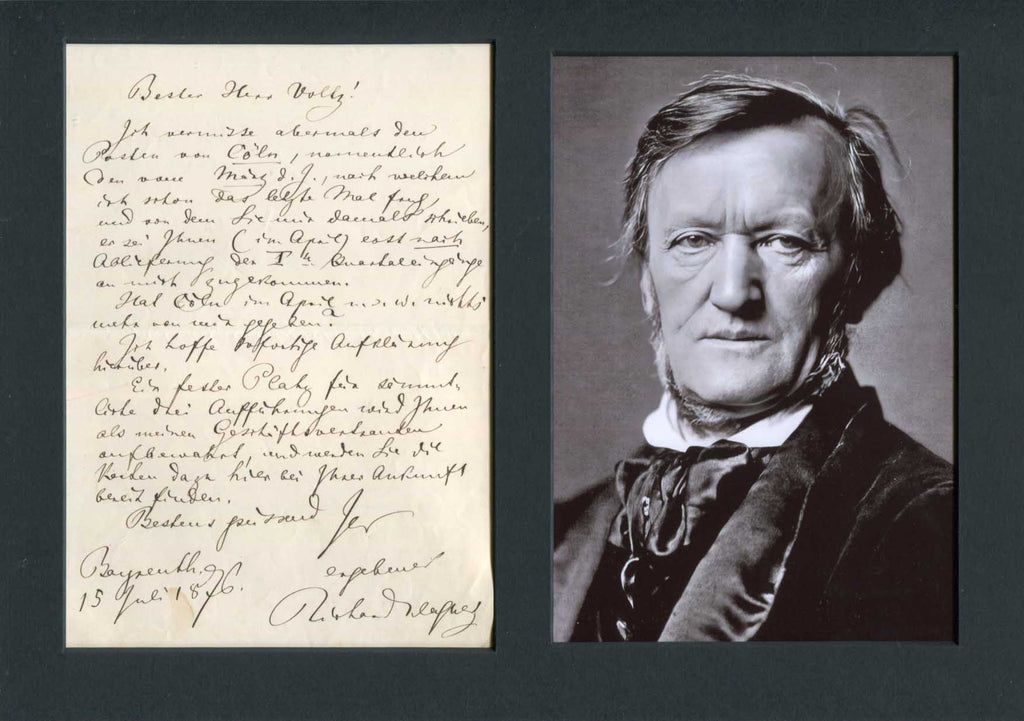 Bester Herr Voltz!
Ich vermisse abermals den
Posten von Cöln, namentlich
den vom März d. J., nach welchem
ich schon das letzte Mal frug,
und von dem Sie mir damals schrieben,
er sei Ihnen (im April) erst nach
Ablieferung der I Quartaleingänge
an mich zugekommen.
Hat Cöln im April u. s. w. nichts
mehr von mir gegeben?
Ich hoffe sofortige Aufklärung
hierüber.
Ein fester Platz für sämmt-
liche drei Aufführungen wird Ihnen
als meinen Geschäftsvertrauten
aufbewahrt, und werden Sie die
Karten dazu hier bei Ihrer Ankunft
bereit finden.
Bestens grüssend Ihr
Bayreuth. ergebener
15 Juli 1876. Richard Wagner